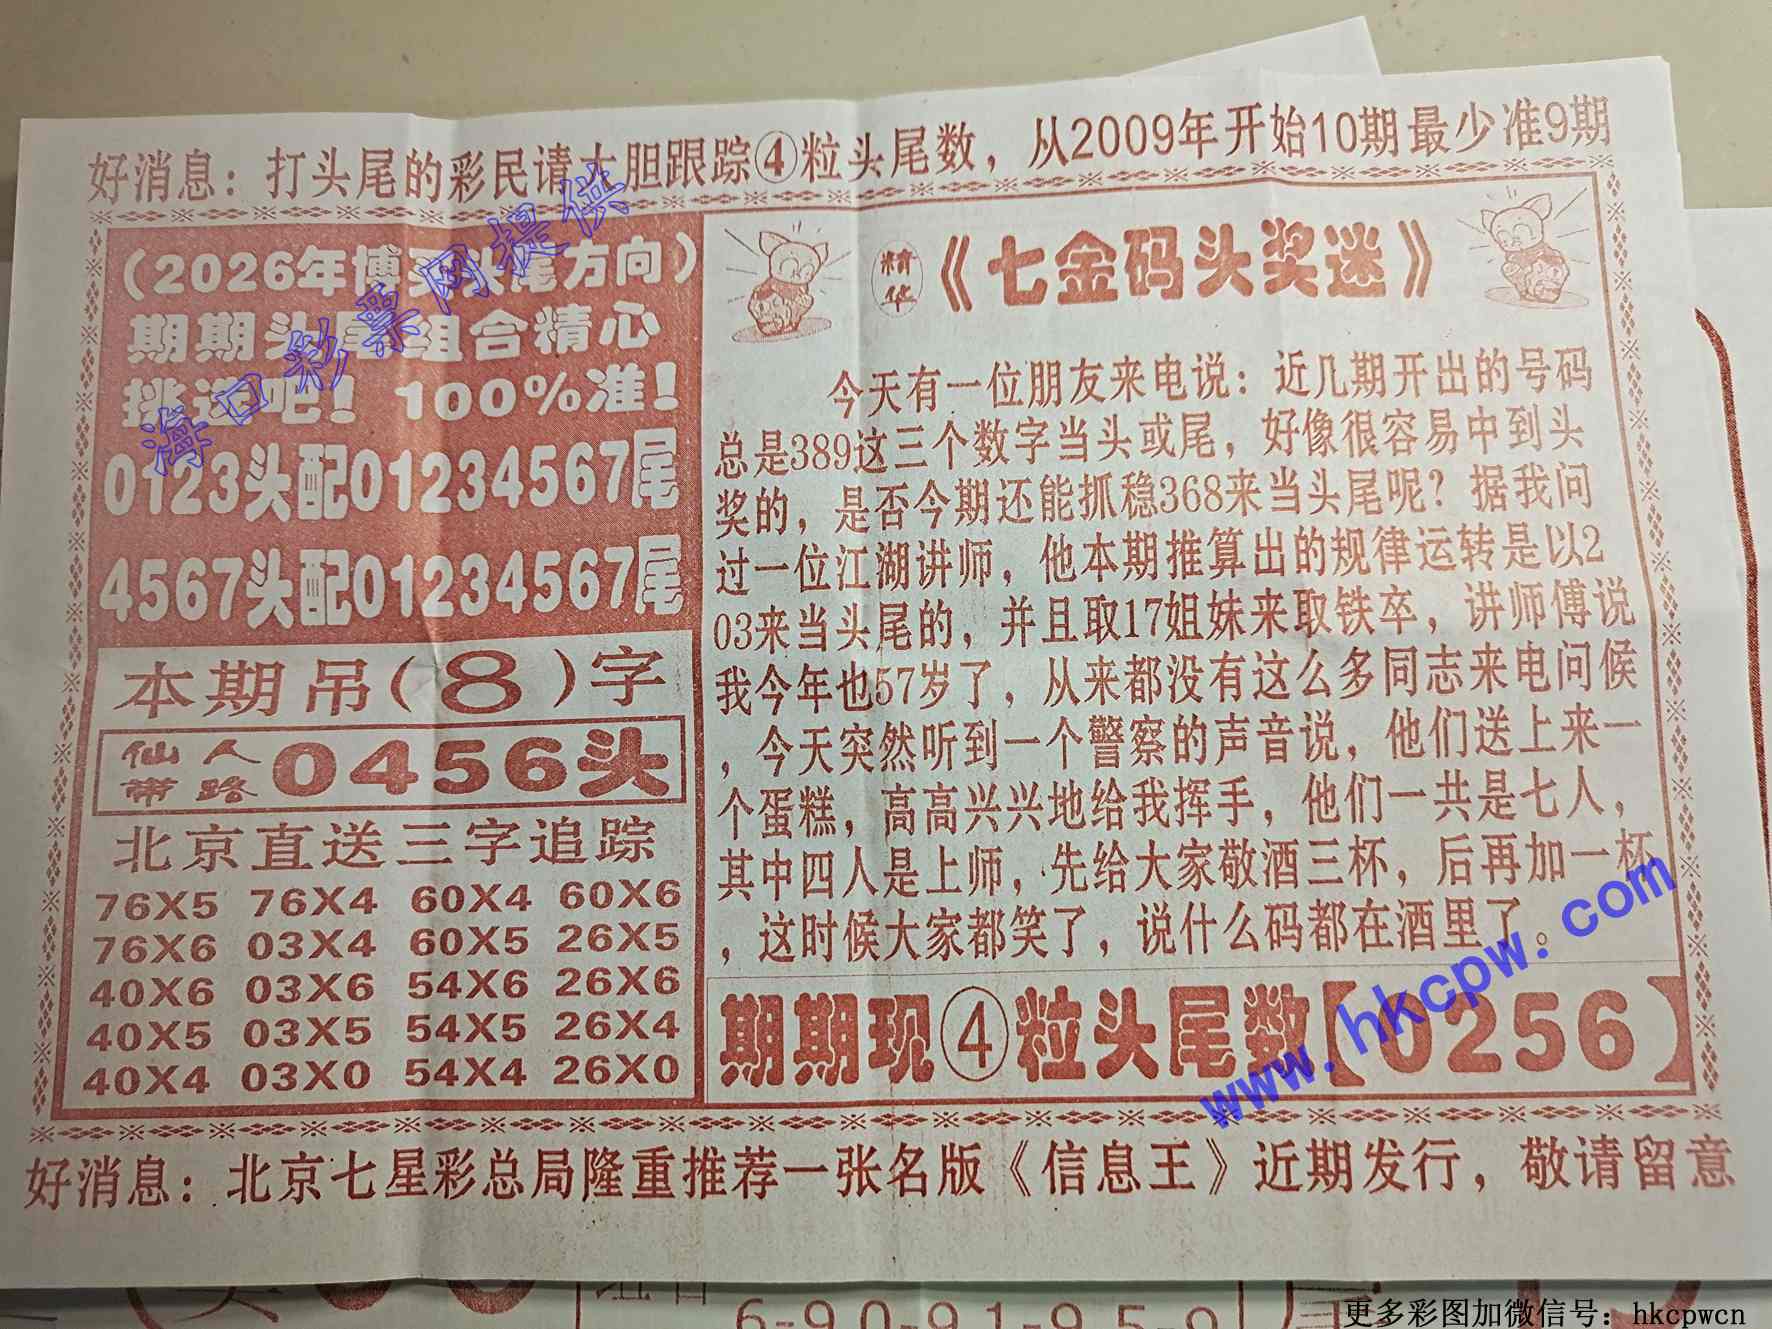 好消息：打头尾的彩民请大胆跟踪④粒头尾数，从2009年开始10期最少准9期
（2026年博买头尾方向）
期期头尾组合精心
挑选吧！100%准！
0123头配01234567尾
4567头配01234567尾
本期吊（8）字
仙人带路 0456头
北京直送三字追踪
76X5 76X4 60X4 60X6
76X6 03X4 60X5 26X5
40X6 03X6 54X6 26X6
40X5 03X5 54X5 26X4
40X4 03X0 54X4 26X0
精华《七金码头奖迷》
今天有一位朋友来电说：近几期开出的号码
总是389这三个数字当头或尾，好像很容易中到头
奖的，是否今期还能抓稳368来当头尾呢？据我问
过一位江湖讲师，他本期推算出的规律运转是以2
03来当头尾的，并且取17姐妹来取铁卒，讲师傅说
我今年也57岁了，从来都没有这么多同志来电问候
，今天突然听到一个警察的声音说，他们送上来一
个蛋糕，高高兴兴地给我挥手，他们一共是七人，
其中四人是上师，先给大家敬酒三杯，后再加一杯
，这时候大家都笑了，说什么码都在酒里了。
期期现④粒头尾数【0256】
好消息：北京七星彩总局隆重推荐一张名版《信息王》近期发行，敬请留意
海口彩票网提供
www.hkcpw.com
6-90-91-95-9
更多彩图加微信号：hkcpwcn